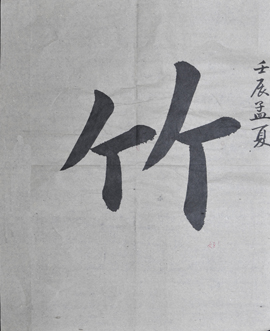 壬辰孟夏
竹